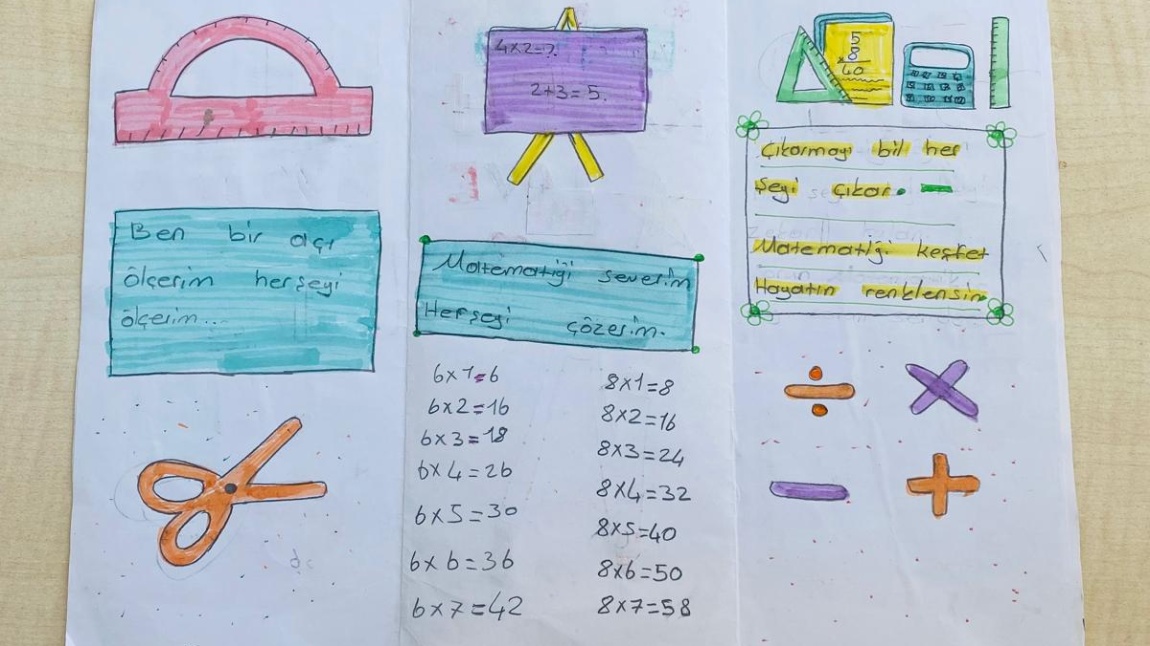 Ben bir açı
ölçerim herşeyi
ölçerim...
4x2=?
2+3=5.
Matematiği severim
Herşeyi çözerim.
6x1=6
6x2=16
6x3=18
6x4=26
6x5=30
6x6=36
6x7=42
8x1=8
8x2=16
8x3=24
8x4=32
8x5=40
8x6=50
8x7=58
5
8
x
40
Çıkarmayı bil her
şeyi çıkar. -
Matematiği keşfet
Hayatın renklensin.
÷ ×
- +